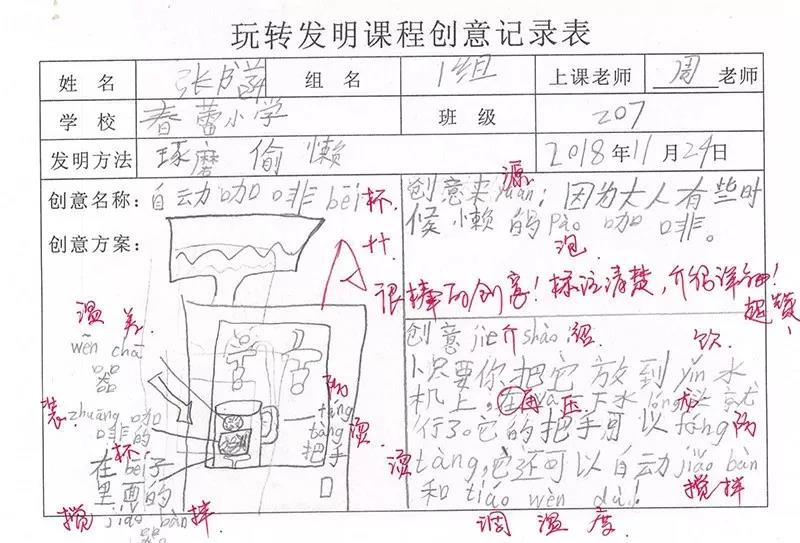 玩转发明课程创意记录表
姓名 张成菡 组名 1组 上课老师 周老师
学校 春蕾小学 班级 207
发明方法 琢磨偷懒 2018年11月24日
创意名称：自动咖啡bēi杯
创意方案：
创意来yuán源：因为大人有些时
候懒的pào泡咖啡。
A++
很棒的创意！标注清楚，介绍详细！
超赞！
温差
wēn chā
器
装
zhuāng咖
啡的
杯
在bēi子
里面的
搅拌
jiǎo bàn
器
防烫
táng
tàng
把手
创意jiè介shào绍：
只要你把它放到yǐn饮水
机上，在再yā压下水lóng龙头就
行了。它的把手可以fáng防
tàng烫，它还可以自动jiǎo bàn
搅拌
和tiáo wēn dù！
调温度